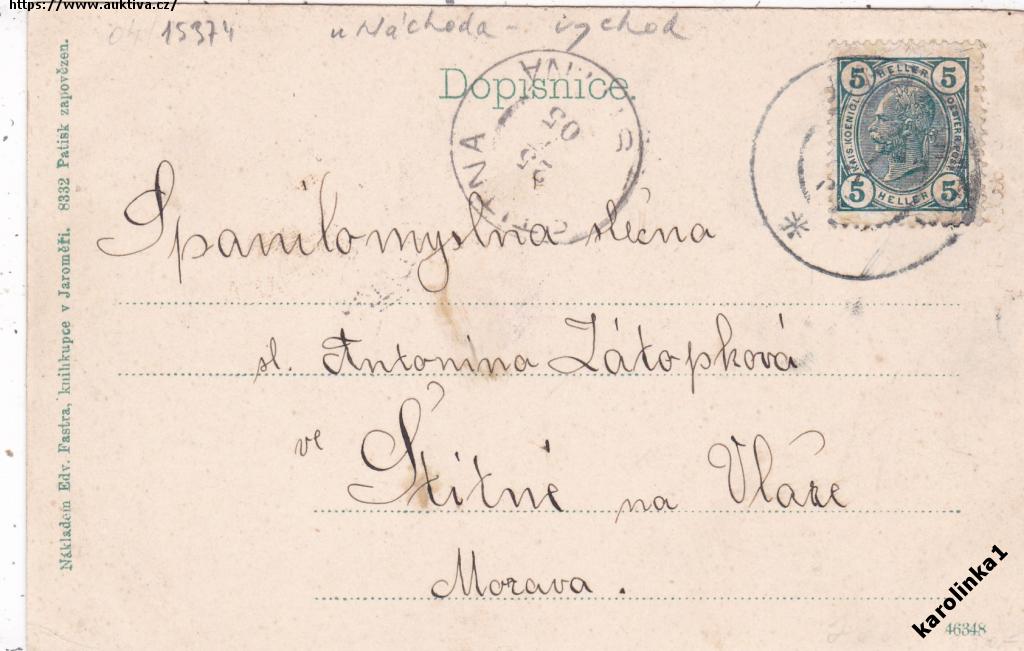 https://www.auktiva.cz/
15374
u Náchoda - východ
Dopisnice.
5 HELLER 5
KAIS. KOENIGL. OESTERR. POST
5 HELLER 5
Spanilomyslná slečna
sl. Antonína Zátopková
ve Štítné na Vláře
Morava.
Nákladem Edv. Fastra, knihkupce v Jaroměři. 8332 Patisk zapovězen.
46348
karolinka1